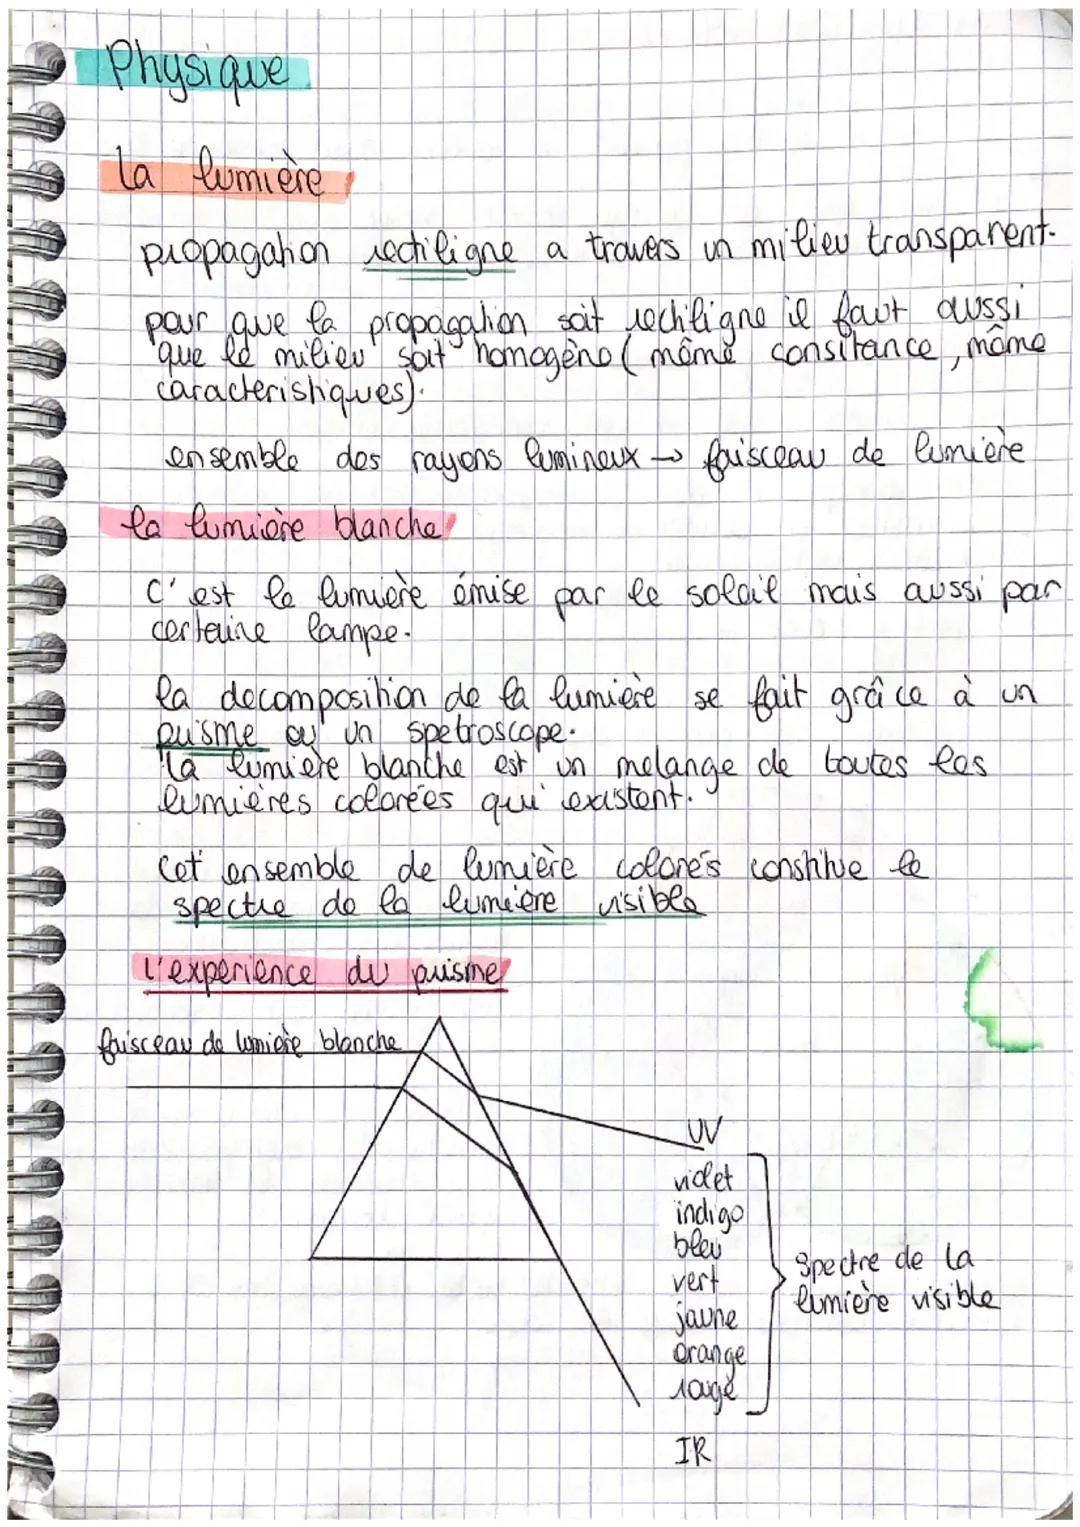 Physique
la lumière
propagation rectiligne a travers un milieu transparent.
pour que la propagation soit rechiligne il faut aussi
que le milieu soit homogène (même consitance, même
caracteristiques).
ensemble des rayons lumineux → faisceau de lumière
la lumière blanche
C'est la lumière émise par le soleil mais aussi par
certaine lampe.
la decomposition de la lumière se fait grâce à un
prisme ou un spetroscope.
la lumière blanche est un melange de toutes les
lumières colorées qui existent.
Cet ensemble de lumière colorés constitue le
spectre de la lumière visible
l'experience du prisme
faisceau de lumière blanche
UV
violet
indigo
bleu
vert
jaune
orange
rouge
spectre de la
lumière visible
IR